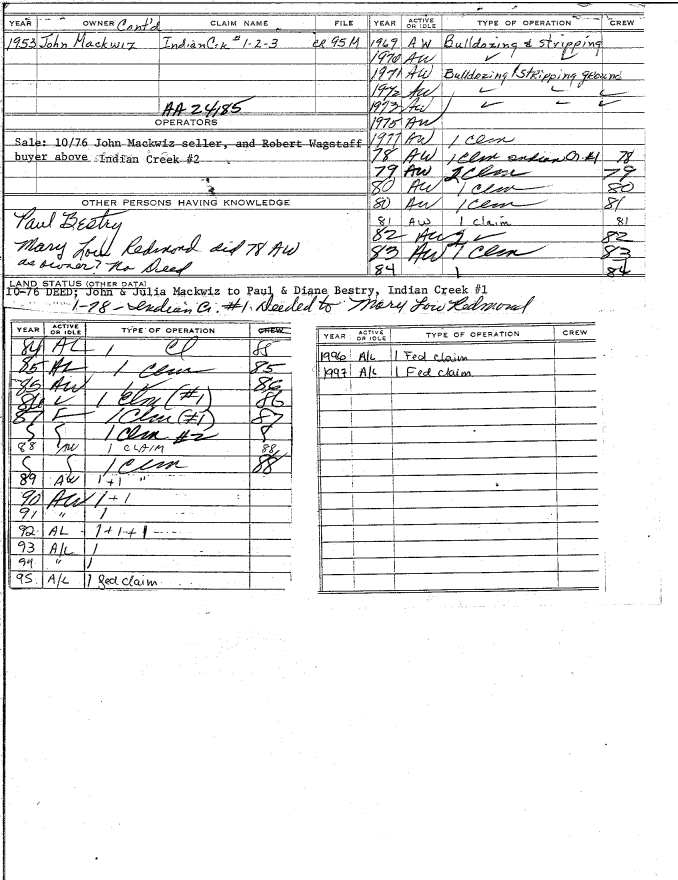 YEAR OWNER Cont'd CLAIM NAME FILE
1953 John Mackwiz Indian Crk #1-2-3 CR 95M
AA 24185
OPERATORS
Sale: 10/76 John Mackwiz seller, and Robert Wagstaff
buyer above Indian Creek #2
OTHER PERSONS HAVING KNOWLEDGE
Paul Bestry
Mary Lou Redmond did 78 AW
as owner? No Deed
YEAR ACTIVE OR IDLE TYPE OF OPERATION CREW
1969 AW Bulldozing & stripping
1970 AW ✓ ✓
1971 AW Bulldozing / stripping ground
1972 AW ✓ ✓ ✓
1973 AW ✓ ✓ ✓
1975 AW
1977 AW 1 clm
78 AW 1 Clm Indian Cr. #1 78
79 AW 2 Clm 79
80 AW 1 clm 80
80 AW 1 clm 81
81 AW 1 claim 81
82 AW 82
83 AW 1 clm 83
84 1 84
LAND STATUS (OTHER DATA)
10-76 DEED; John & Julia Mackwiz to Paul & Diane Bestry, Indian Creek #1
1-78 - Indian Cr. #1 Deeded to Mary Lou Redmond
YEAR ACTIVE OR IDLE TYPE OF OPERATION CREW
84 AL 1 Cl 85
85 AL 1 clm 85
85 AW 86
86 ✓ 1 Clm (#1) 86
87 1 Clm (#1) 87
1 Clm #2
88 1 CLAIM 88
1 clm 88
89 AW 1+1 "
90 AW 1+1
91 " 1
92 AL 1+1+1
93 A/L 1
94 " 1
95 A/L 1 Fed claim
YEAR ACTIVE OR IDLE TYPE OF OPERATION CREW
1996 A/L 1 Fed claim
1997 A/L 1 Fed claim